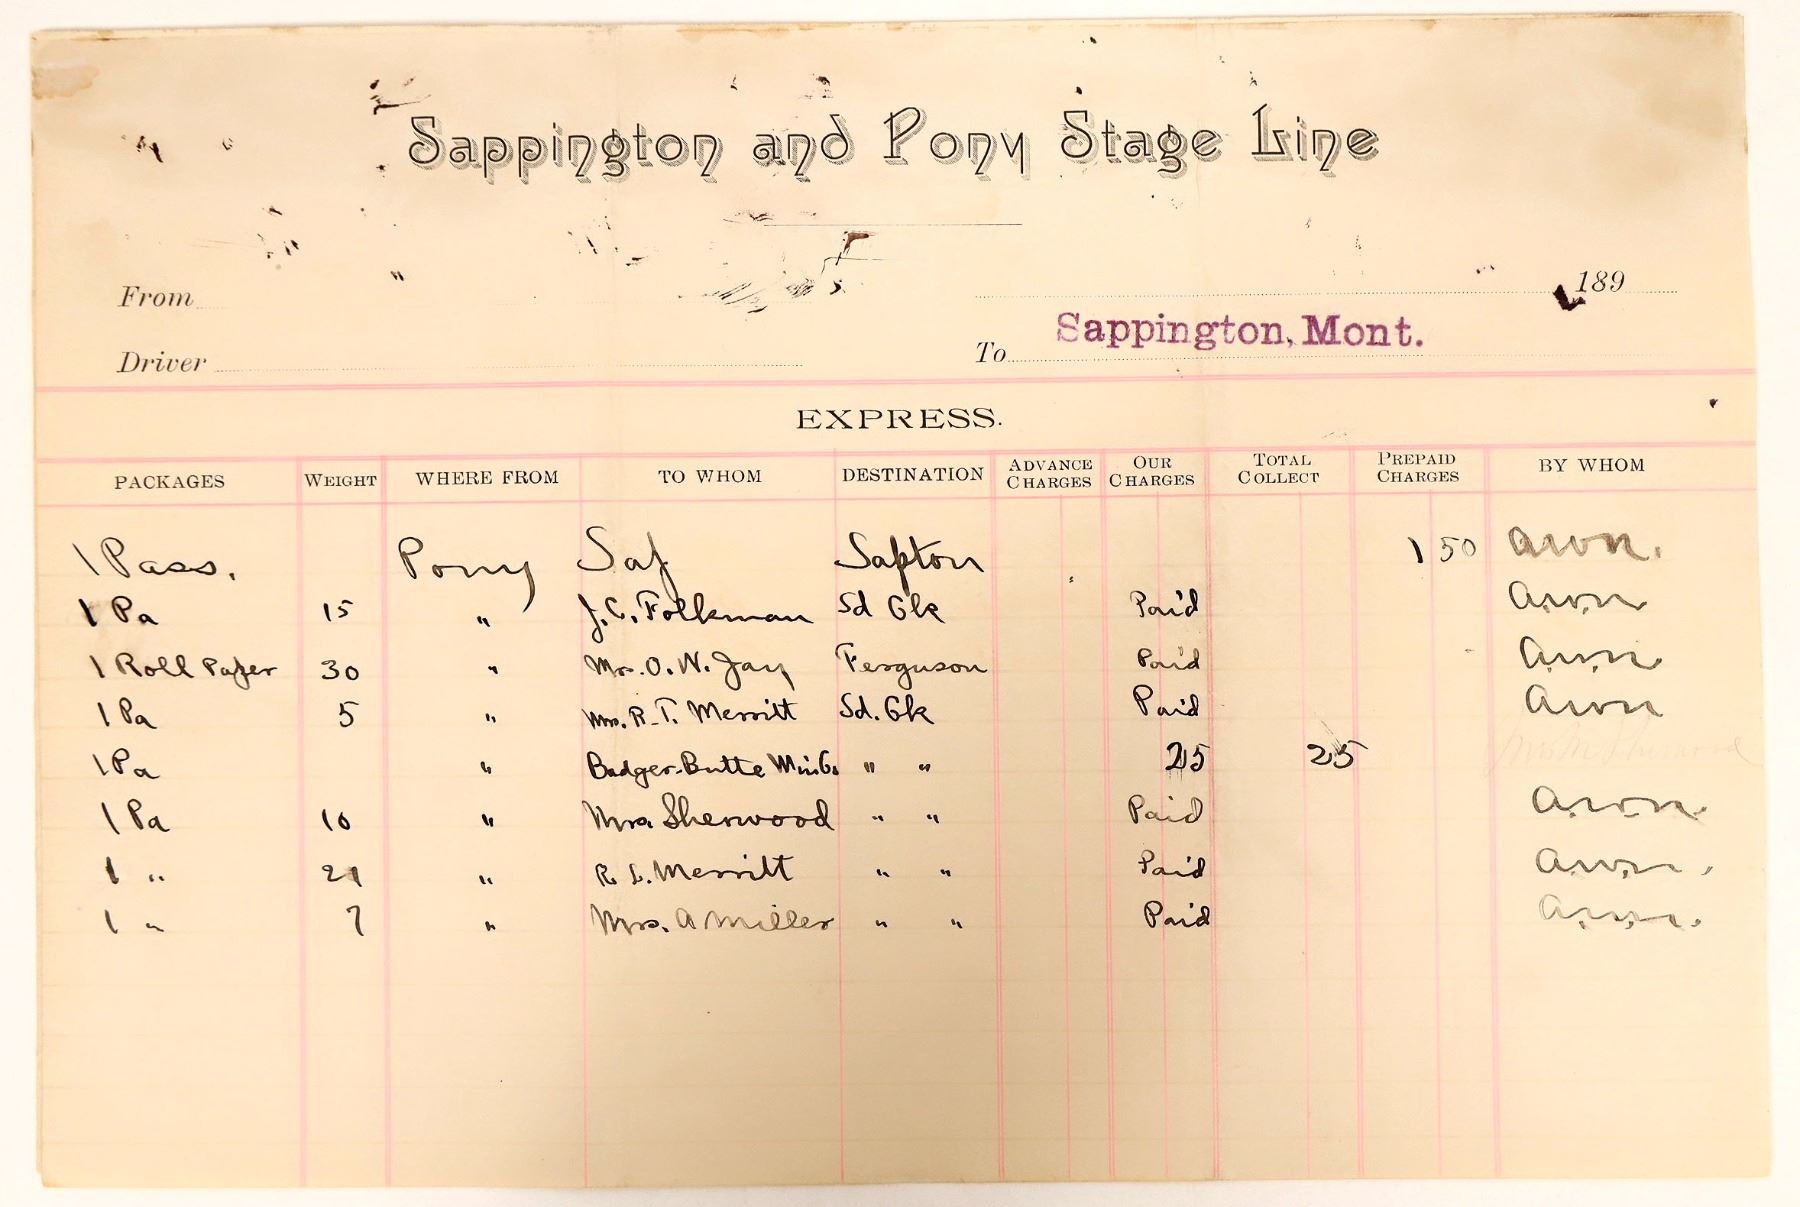 Sappington and Pony Stage Line
From
189
Driver
To Sappington, Mont.
EXPRESS.
PACKAGES WEIGHT WHERE FROM TO WHOM DESTINATION ADVANCE CHARGES OUR CHARGES TOTAL COLLECT PREPAID CHARGES BY WHOM
1 Pass. Pony Sapton 1 50
1 Pa 15 " J. C. Folkman Sd Gk Paid
1 Roll Paper 30 " Mrs. O. W. Jay Ferguson Paid
1 Pa 5 " Mrs. R. T. Merritt Sd. Gk Paid
1 Pa " Badger-Butte " " 25 25
1 Pa 10 " Mrs. Sherwood " " Paid
1 " 21 " R. L. Merritt " " Paid
1 " 7 " Mrs. A Miller " " Paid